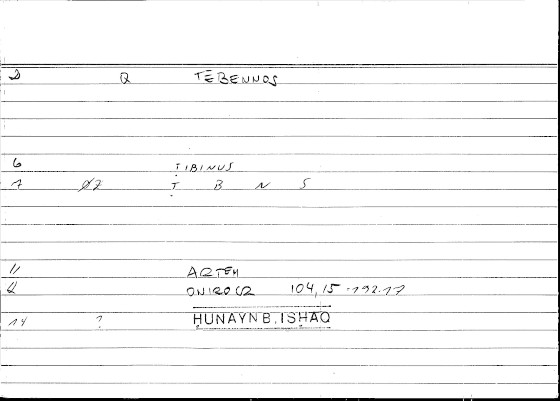 2 Q TĒBENNOS
6 ṬIBINUS
7 ø2 Ṭ B N S
11 ARTEM
12 ONIROCR 104,15 -192.17
14 ? ḤUNAYN B. ISḤĀQ